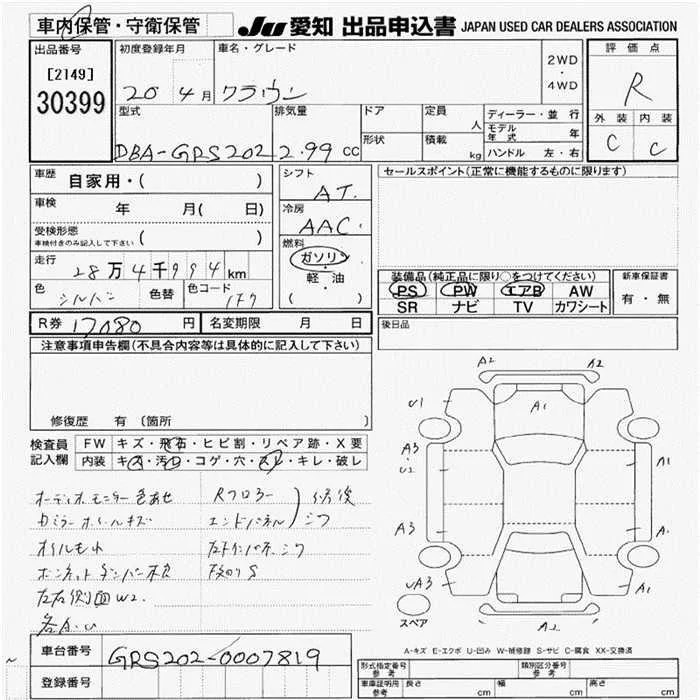 車内保管・守衛保管 JU 愛知 出品申込書 JAPAN USED CAR DEALERS ASSOCIATION
出品番号 初度登録年月 車名・グレード 評価点
[2149] 2WD
30399 20 4月 クラウン 4WD R
型式 排気量 ドア 定員 人 ディーラー・並行 外装 内装
モデル年式 年 C C
形状 積載 kg ハンドル 左・右
DBA-GRS202 2.99 cc
車歴 自家用・( ) シフト AT. セールスポイント(正常に機能するものに限ります)
車検 年 月( 日) 冷房 AAC
受検形態 ( )
車検付きのみ記入して下さい
燃料 ガソリン・軽油 ( )
走行 28万4千994km
装備品(純正品に限り○をつけてください) 新車保証書
色 シルバー 色替 色コード 1F7 PS PW エアB AW 有・無
SR ナビ TV カワシート
R券 17080円 名変期限 月 日 後日品
注意事項申告欄(不具合内容等は具体的に記入して下さい)
修復歴 有 (箇所
検査員記入欄 FW キズ・飛石・ヒビ割・リペア跡・X要
内装 キズ・汚れ・コゲ・穴・スレ・キレ・破レ
A2 A2
U1 A1
A3 U2 A1
A3 A
UA3 A1
A2
オーディオモニター色あせ Rフロアー 修復
カミラーホイールキズ エンドパネル シワ
オイルもれ
ボンネットダンパー不良
左右側面W2.
スペア
A-キズ E-エクボ U-凹み W-補修跡 S-サビ C-腐食 XX-交換済
車台番号 GRS202-0007819
登録番号
形式指定番号 参考 類別区分番号 参考
車庫証明用 参考 長さ cm 幅 cm 高さ cm